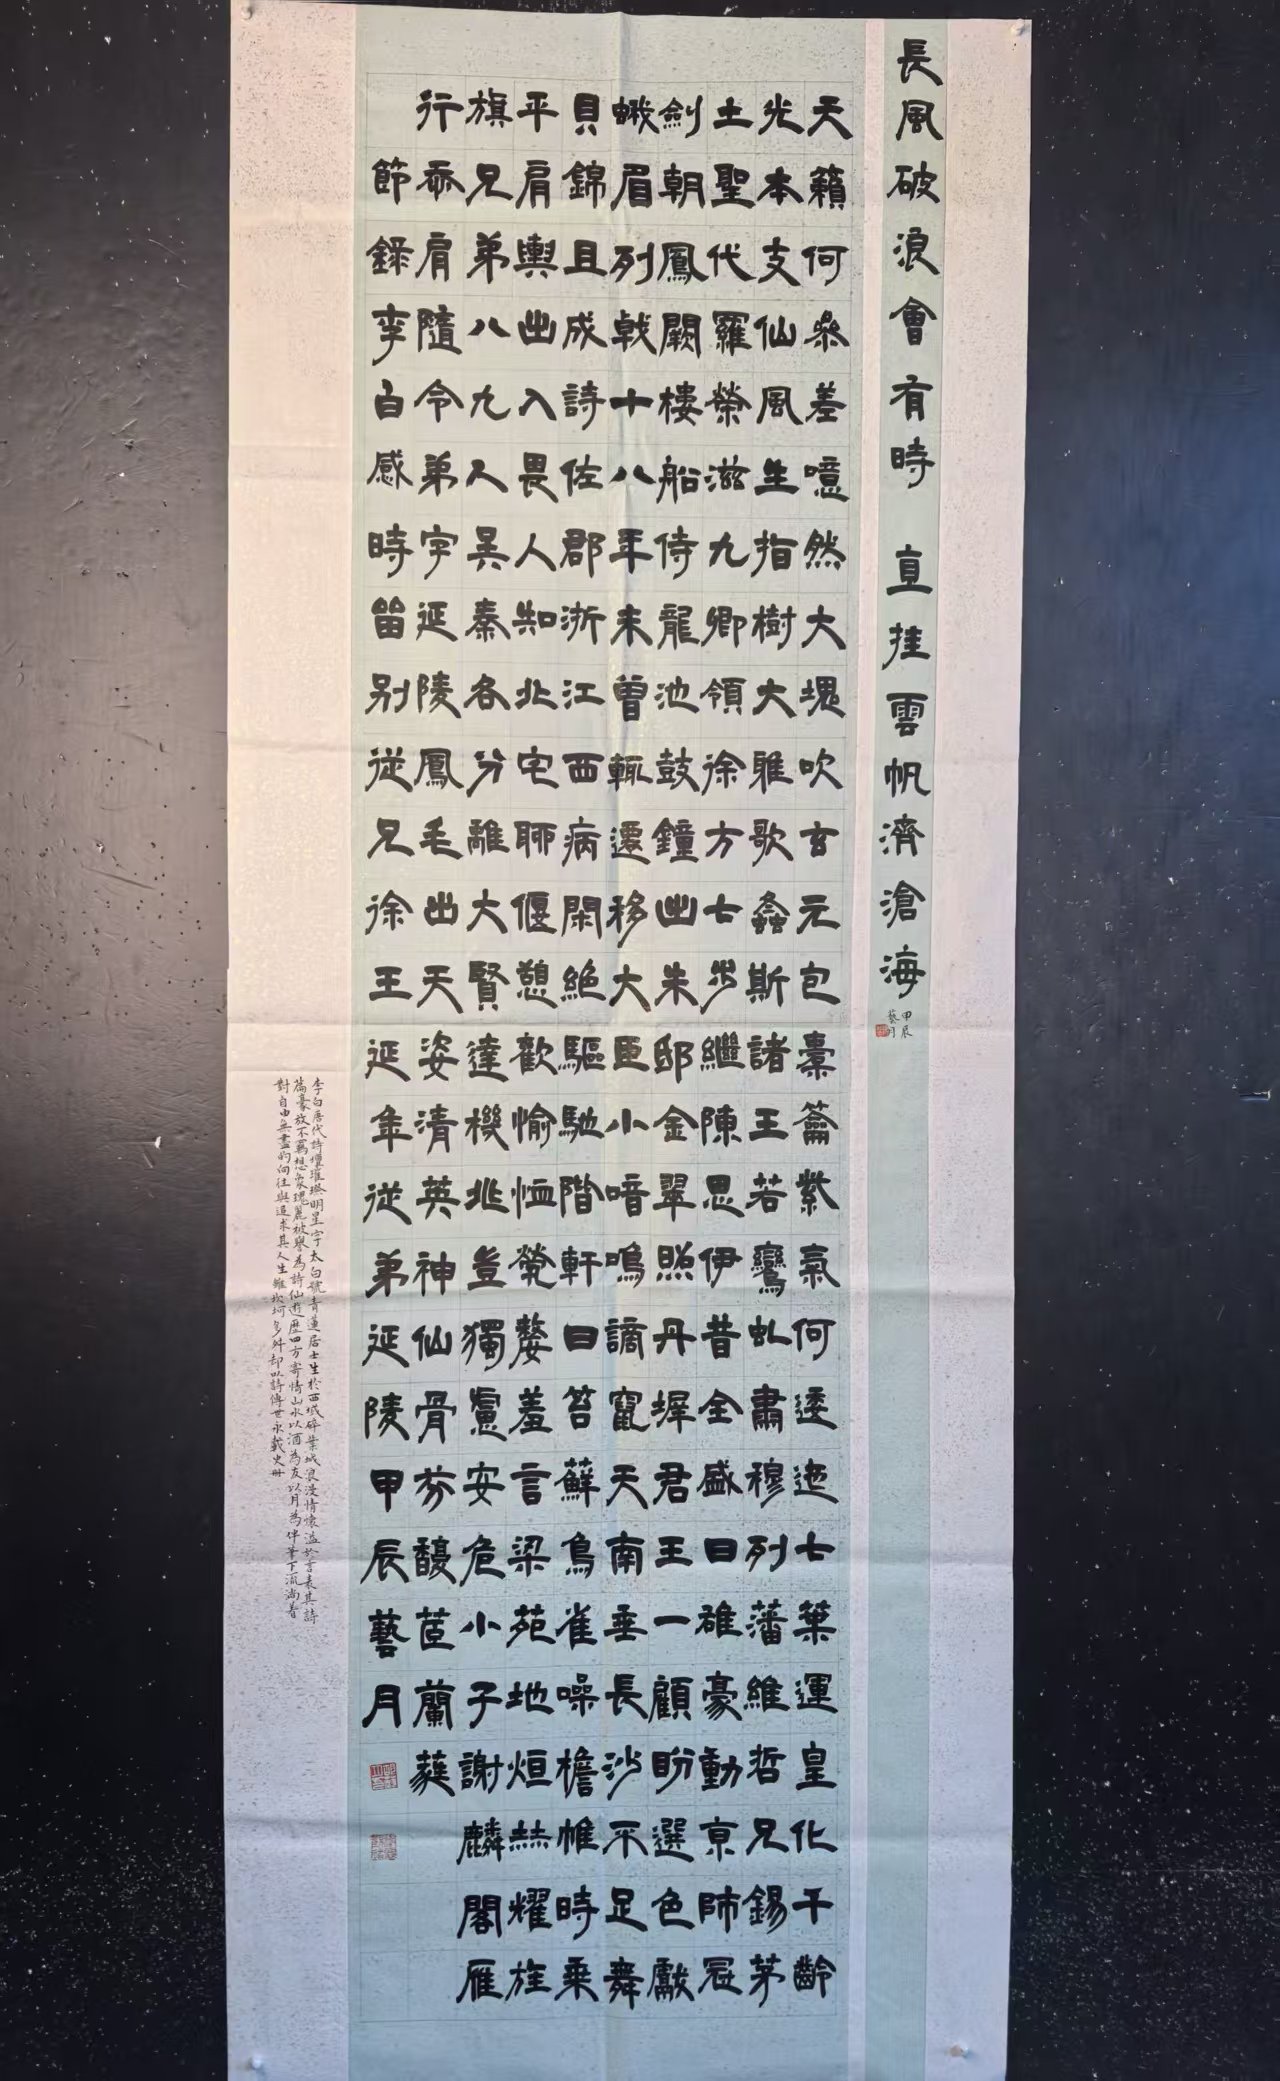 長風破浪會有時 直挂雲帆濟滄海
甲辰
藝月
天籟何參差噫然大塊吹玄元包橐籥紫氣何逶迤七葉運皇化千齡
光本支仙風生指樹大雅歌螽斯諸王若鸞虬肅穆列藩維哲兄錫茅
土聖代羅榮滋九卿領徐方七步繼陳思伊昔全盛日雄豪動京師冠
劍朝鳳闕樓船侍龍池鼓鐘出朱邸金翠照丹墀君王一顧盼選色獻
蛾眉列戟十八年未曾輒遷移大臣小喑嗚謫竄天南垂長沙不足舞
貝錦且成詩佐郡浙江西病閑絕驅馳階軒日苔蘚鳥雀噪檐帷時乘
平肩輿出入畏人知北宅聊偃憩歡愉恤煢嫠羞言梁苑地烜赫耀旌
旗兄弟八九人吳秦各分離大賢達機兆豈獨慮安危小子謝麟閣雁
行忝肩隨令弟字延陵鳳毛出天姿清英神仙骨芬馥茝蘭蕤
節錄李白感時留別從兄徐王延年從弟延陵甲辰藝月
李白唐代詩壇璀璨明星字太白號青蓮居士生於西域碎葉城浪漫情懷溢於言表其詩
篇豪放不羈想象瑰麗被譽為詩仙遊歷四方寄情山水以酒為友以月為伴筆下流淌着
對自由無盡的向往與追求其人生雖坎坷多舛却以詩傳世永載史冊